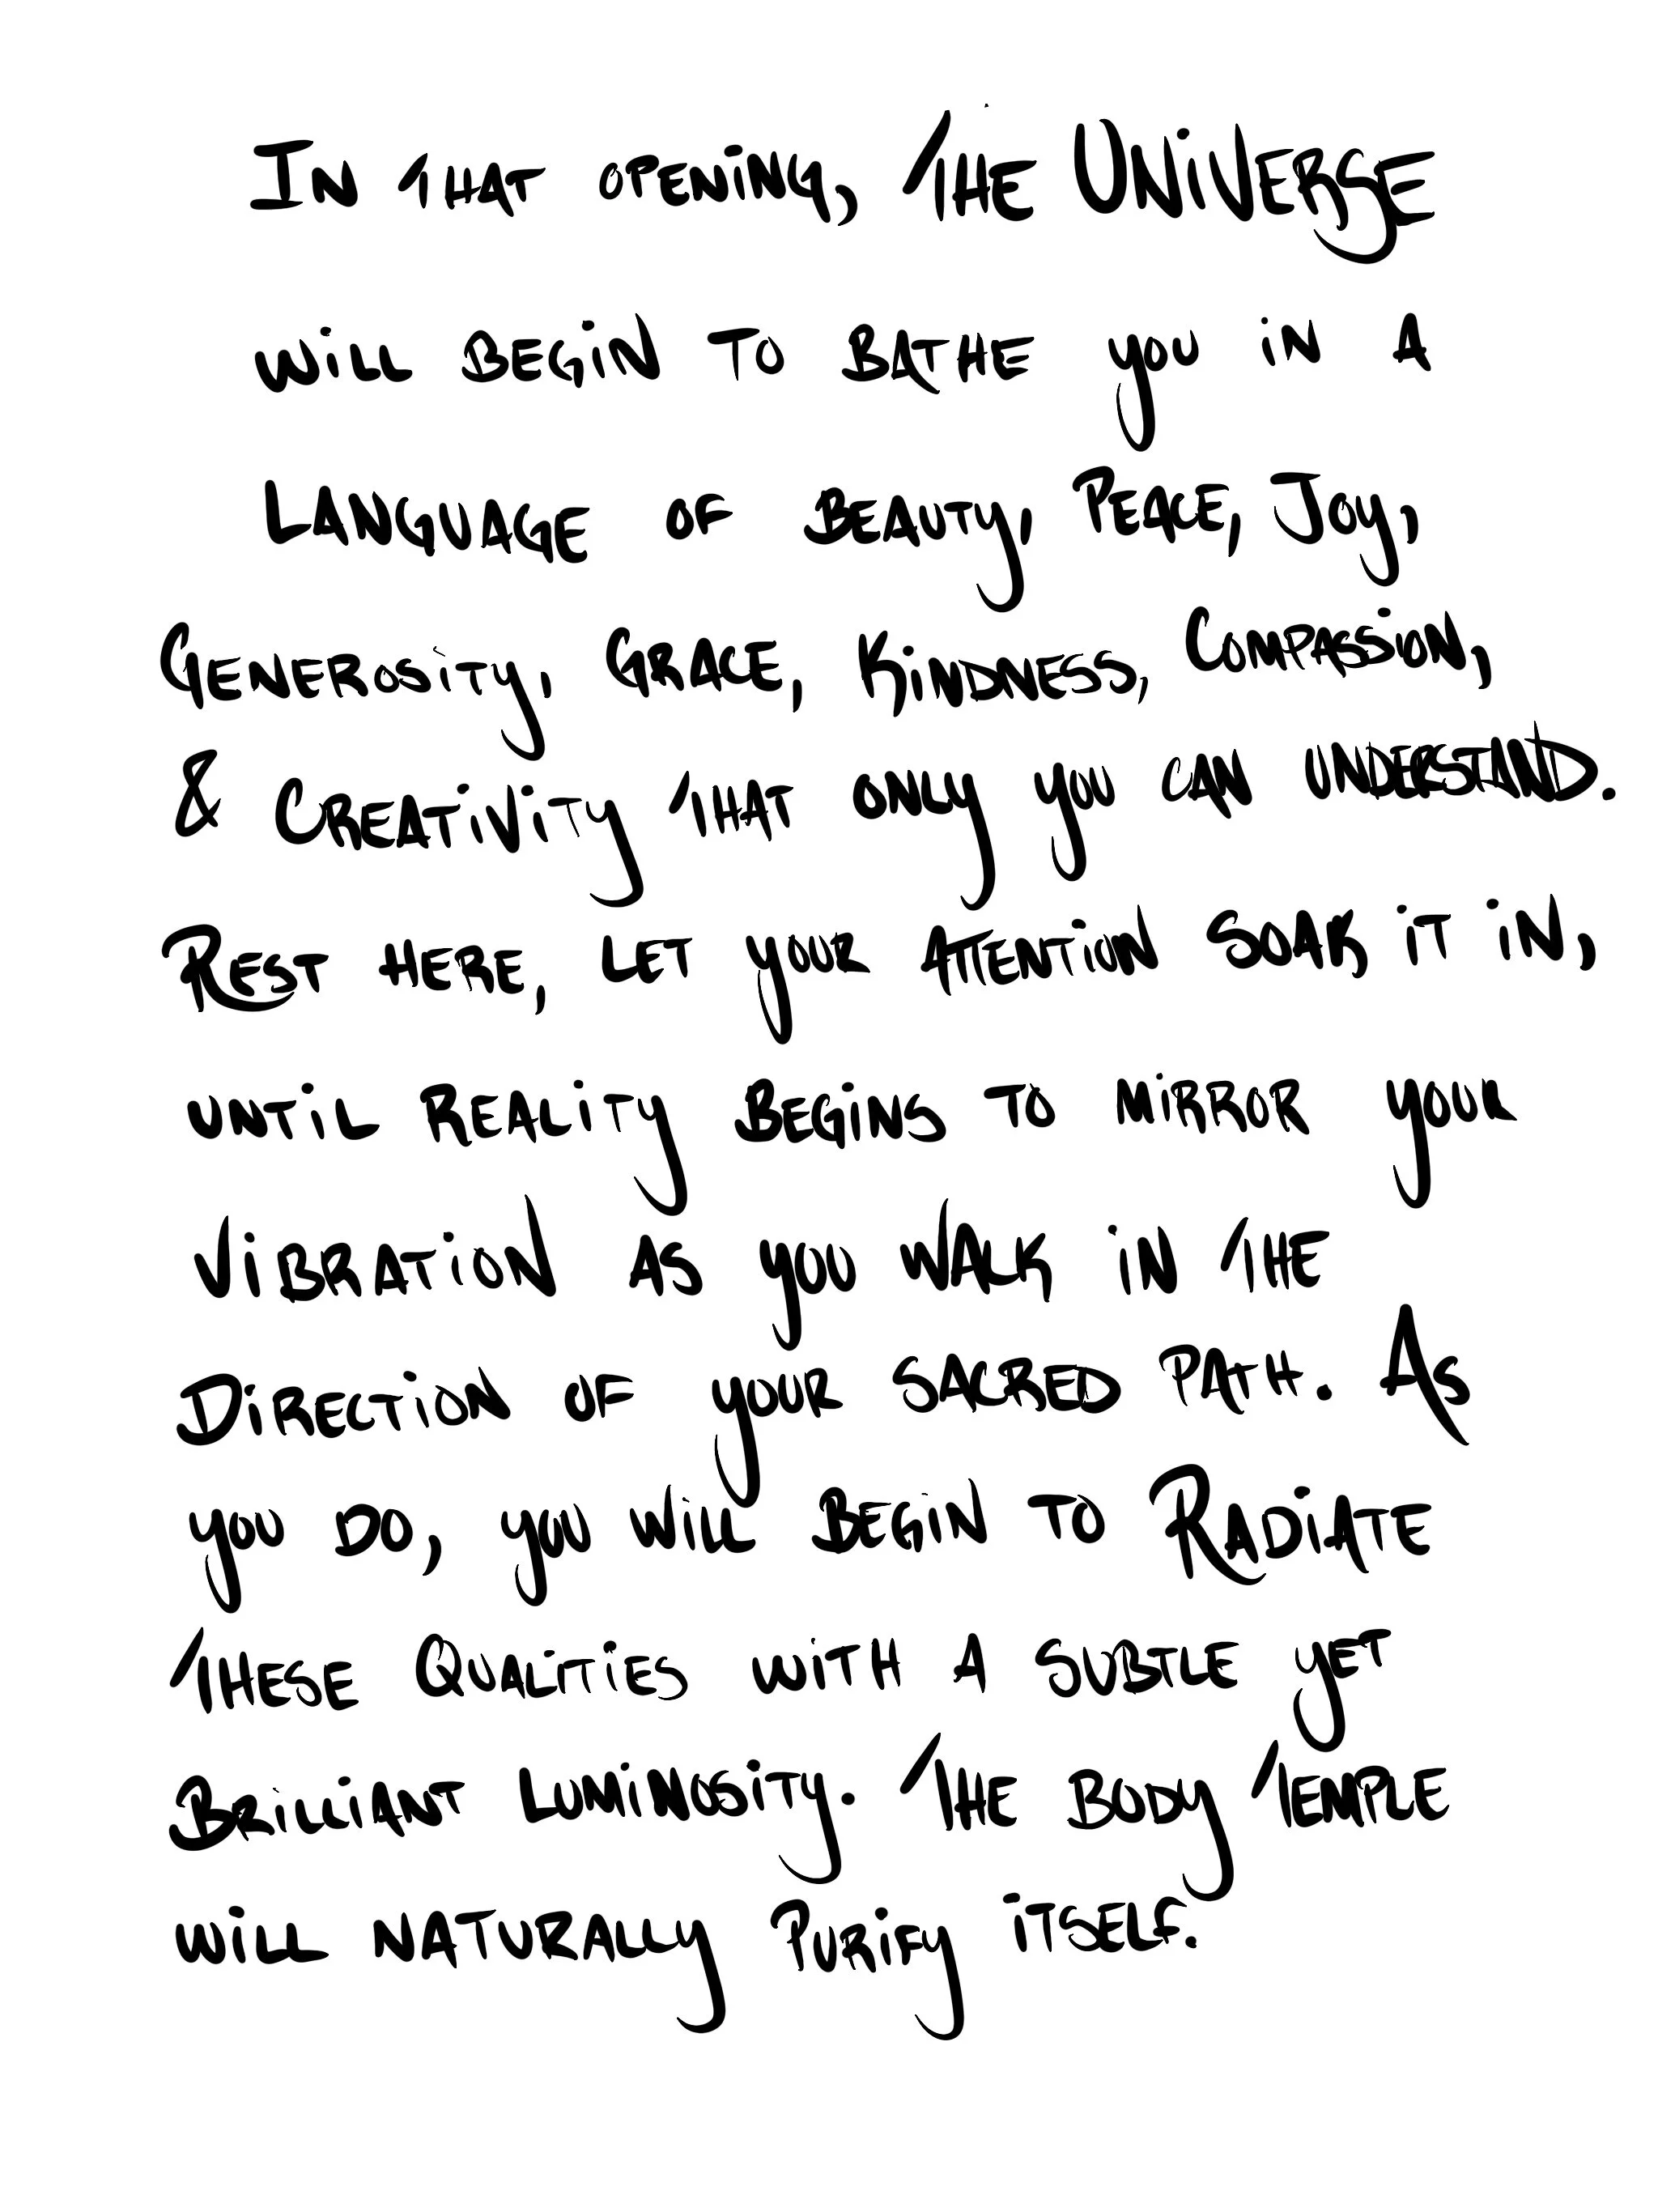 In that opening, The Universe
will begin to bathe you in a
Language of beauty, Peace, Joy,
Generosity, Grace, Kindness, Compassion,
& Creativity that only you can understand.
Rest here, let your attention soak it in,
until reality begins to mirror your
vibration as you walk in the
Direction of your sacred path. As
you do, you will begin to Radiate
These Qualities with a subtle yet
Brilliant Luminosity. The body Temple
will naturally Purify itself.